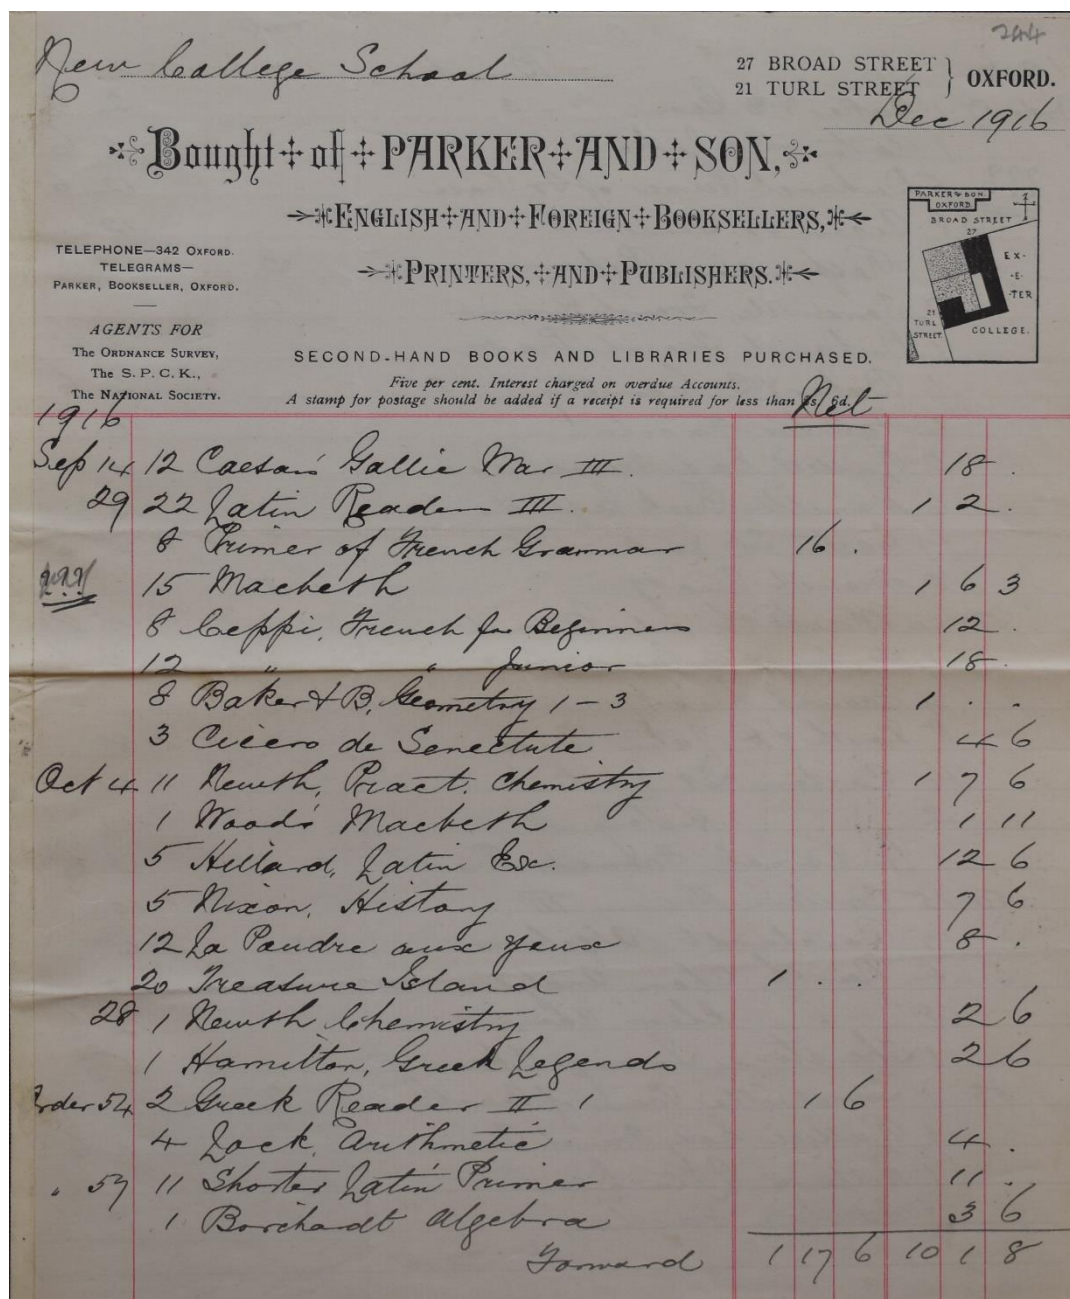 244
New College School
27 BROAD STREET
21 TURL STREET } OXFORD.
Dec 1916
Bought of PARKER AND SON,
ENGLISH AND FOREIGN BOOKSELLERS,
PRINTERS, AND PUBLISHERS.
TELEPHONE—342 OXFORD.
TELEGRAMS—
PARKER, BOOKSELLER, OXFORD.
AGENTS FOR
The ORDNANCE SURVEY,
The S. P. C. K.,
The NATIONAL SOCIETY.
PARKER & SON
OXFORD
BROAD STREET
27
EX-
-E-
-TER
21
TURL
STREET
COLLEGE.
SECOND-HAND BOOKS AND LIBRARIES PURCHASED.
Five per cent. Interest charged on overdue Accounts.
A stamp for postage should be added if a receipt is required for less than 2s. 6d.
Net
1916
Sep 14 12 Caesar's Gallic War III. 18 .
29 22 Latin Reader III. 1 2 .
8 Primer of French Grammar 16 .
15 Macbeth 1 6 3
8 Ceppi, French for Beginners 12 .
12 " " Junior 18 .
8 Baker & B, Geometry 1 - 3 1 . .
3 Cicero de Senectute 4 6
Oct 4 11 Newth, Pract. Chemistry 1 7 6
1 Wood's Macbeth 1 11
5 Hillard, Latin Ex. 12 6
5 Nixon, History 7 6
12 La Poudre aux Yeux 8 .
20 Treasure Island 1 . .
28 1 Newth Chemistry 2 6
1 Hamilton, Greek Legends 2 6
Order 54 2 Greek Reader II 1 1 6
4 Lock, Arithmetic 4 .
" 57 11 Shorter Latin Primer 11 .
1 Borchardt Algebra 3 6
Forward 1 17 6 10 1 8